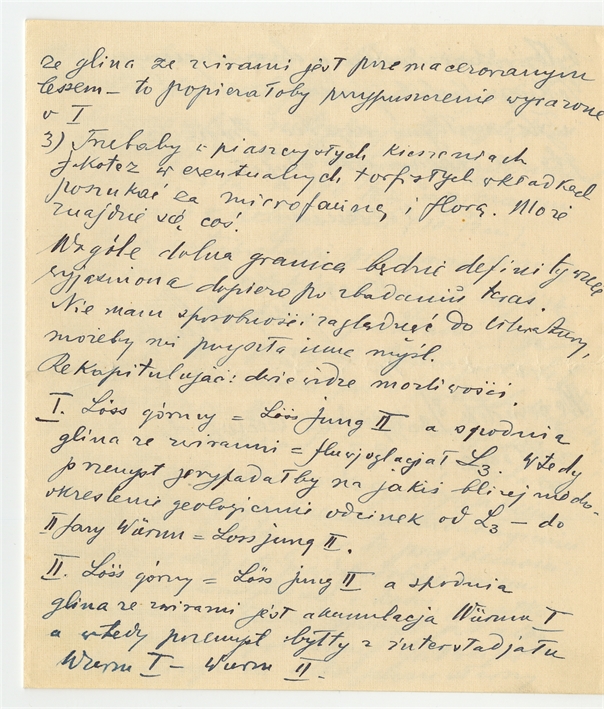 że glina ze żwirami jest przemacerowanym
lessem – to popierałoby przypuszczenie wyrażone
v I
3) Trzebaby w piaszczystych kieszeniach
jakoteż w ewentualnych torfistych wkładkach
poszukać za microfauną i florą. Może
znajdzie się coś.
Wogóle dolna granica będzie definitywnie
wyjaśniona dopiero po zbadaniu teras.
Nie mam sposobności zaglądnąć do literatury,
możeby mi przyszła inna myśl.
Rekapitulując: dwie widzę możliwości.
I. Löss górny = Löss jung II a spodnia
glina ze żwirami = fluwjoglacjał L3. Wtedy
przemysł przypadałby na jakiś bliżej niedo-
określenie geologicznie odcinek od L3 – do
II fazy Würm = Löss jung II.
II. Löss górny = Löss jung II a spodnia
glina ze żwirami jest akumulacja Würmu I
a wtedy przemysł byłby z interstadjału
Würm I – Würm II.